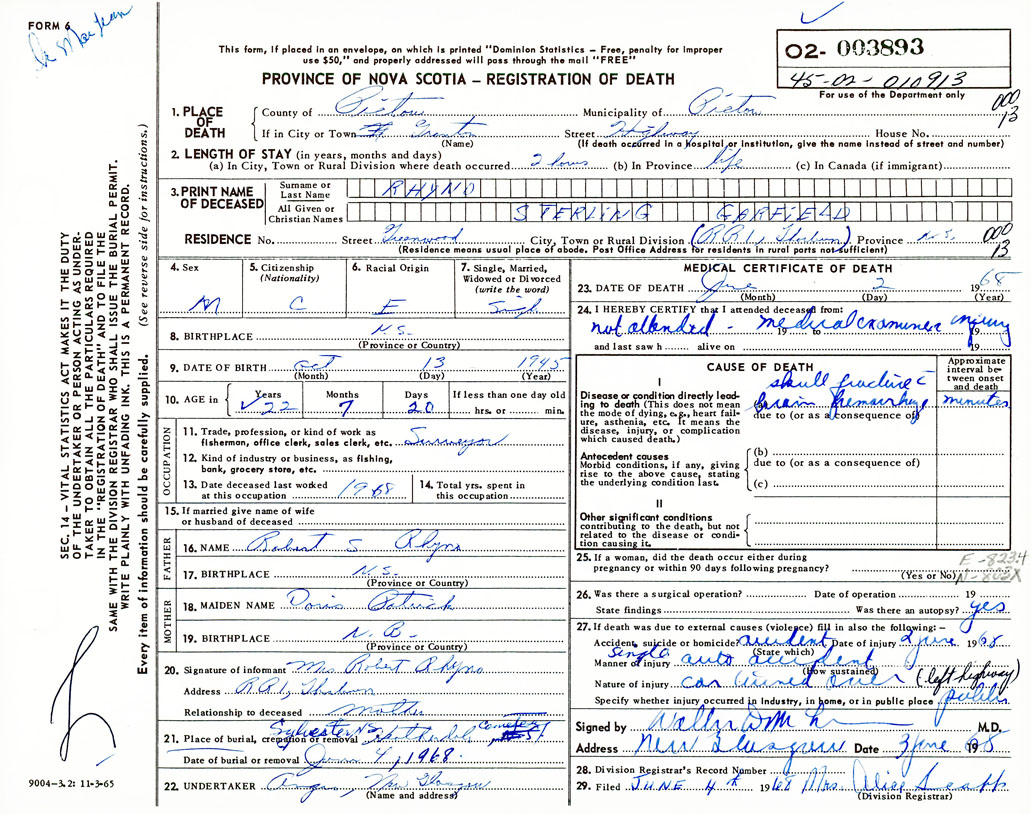 FORM 6
This form, if placed in an envelope, on which is printed "Dominion Statistics – Free, penalty for improper
use $50," and properly addressed will pass through the mail "FREE"
PROVINCE OF NOVA SCOTIA – REGISTRATION OF DEATH
O2- 003893
45-02-010913
For use of the Department only
000
13
1. PLACE OF DEATH
County of Pictou Municipality of Pictou
If in City or Town Granton Street Highway House No.
(Name) (If death occurred in a hospital or institution, give the name instead of street and number)
2. LENGTH OF STAY (in years, months and days)
(a) In City, Town or Rural Division where death occurred 2 hours (b) In Province life (c) In Canada (if immigrant)
3. PRINT NAME OF DECEASED
Surname or Last Name RHYNO
All Given or Christian Names STERLING GARFIELD
RESIDENCE No. Street Greenwood City, Town or Rural Division (R R 1, Thorburn) Province N.S.
000
13
(Residence means usual place of abode. Post Office Address for residents in rural ports not sufficient)
4. Sex
M
5. Citizenship (Nationality)
C
6. Racial Origin
E
7. Single, Married, Widowed or Divorced (write the word)
Single
8. BIRTHPLACE N.S.
(Province or Country)
9. DATE OF BIRTH Oct 13 1945
(Month) (Day) (Year)
10. AGE in
Years 22 Months 7 Days 20 If less than one day old hrs. or min.
OCCUPATION
11. Trade, profession, or kind of work as
fisherman, office clerk, sales clerk, etc. Surveyor
12. Kind of industry or business, as fishing,
bank, grocery store, etc.
13. Date deceased last worked at this occupation 1968
14. Total yrs. spent in this occupation
15. If married give name of wife
or husband of deceased
FATHER
16. NAME Robert S. Rhyno
17. BIRTHPLACE N.S.
(Province or Country)
MOTHER
18. MAIDEN NAME Doris Patrick
19. BIRTHPLACE N.B.
(Province or Country)
20. Signature of informant Mrs Robert Rhyno
Address R R 1, Thorburn
Relationship to deceased Mother
21. Place of burial, cremation or removal Sylvester N.S. Cemetery
Date of burial or removal June 4, 1968.
22. UNDERTAKER Angus, New Glasgow
(Name and address)
MEDICAL CERTIFICATE OF DEATH
23. DATE OF DEATH June 2 1968
(Month) (Day) (Year)
24. I HEREBY CERTIFY that I attended deceased from:
not attended - medical examiner injury
19 19
and last saw h alive on 19
CAUSE OF DEATH
Approximate interval between onset and death
I
Disease or condition directly leading to death (This does not mean the mode of dying, e.g., heart failure, asthenia, etc. It means the disease, injury, or complication which caused death.)
skull fracture c̄
brain hemorrhage minutes
due to (or as a consequence of)
Antecedent causes
Morbid conditions, if any, giving rise to the above cause, stating the underlying condition last.
(b)
due to (or as a consequence of)
(c)
II
Other significant conditions
contributing to the death, but not related to the disease or condition causing it.
25. If a woman, did the death occur either during
pregnancy or within 90 days following pregnancy?
(Yes or No)
E-823.4
N-803X
26. Was there a surgical operation? Date of operation 19
State findings Was there an autopsy? yes
27. If death was due to external causes (violence) fill in also the following: –
Accident, suicide or homicide? accident Date of injury 2 June 1968
(State which)
Manner of injury single auto accident
(How sustained)
Nature of injury car turned over (left highway)
Specify whether injury occurred in industry, in home, or in public place public
Signed by M.D.
Address New Glasgow Date 3 June 1968
28. Division Registrar's Record Number
29. Filed JUNE 4th 1968 Mrs. Alice
(Division Registrar)
SEC. 14 – VITAL STATISTICS ACT MAKES IT THE DUTY
OF THE UNDERTAKER OR PERSON ACTING AS UNDER-
TAKER TO OBTAIN ALL THE PARTICULARS REQUIRED
IN THE "REGISTRATION OF DEATH" AND TO FILE THE
SAME WITH THE DIVISION REGISTRAR WHO SHALL ISSUE THE BURIAL PERMIT.
WRITE PLAINLY WITH UNFADING INK. THIS IS A PERMANENT RECORD.
Every item of information should be carefully supplied. (See reverse side for instructions.)
9004-3.2: 11-3-65